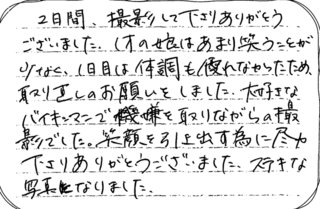 2日間、撮影して下さりありがとう
ございました。1才の娘はあまり笑うことが
少なく、1日目は体調も優れなかったため
取り直しのお願いをしました。大好きな
バイキンマンで機嫌を取りながらの撮
影でした。笑顔を引き出す為に尽力
下さりありがとうございました。ステキな
写真になりました。